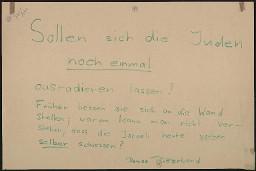 Sollen sich die Juden
noch einmal
ausradieren lassen?
Früher liessen sie sich an die Wand
stellen, warum kann man nicht ver-
stehen, dass die Israeli heute zuerst
selber schiessen?